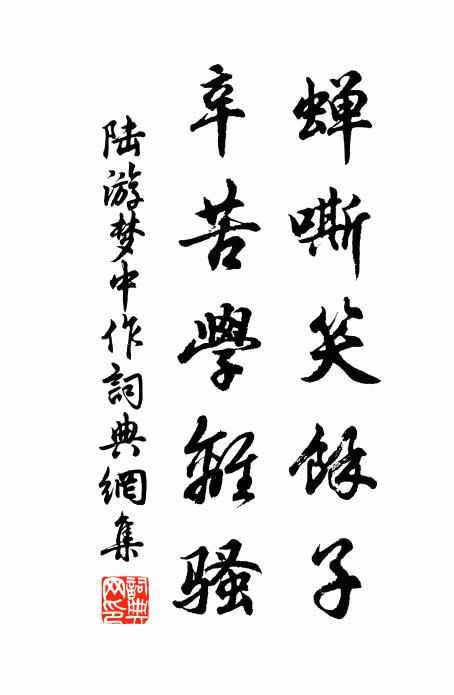 蝉嘶笑餘子
辛苦學離騷
陆游梦中作詞典網集
詞典网印